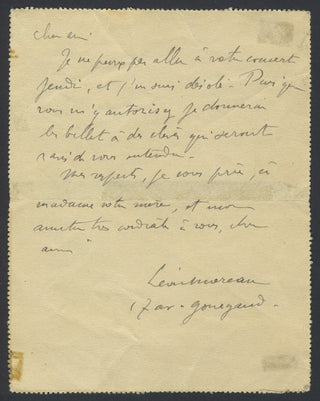 cher ami
Je ne pourrai pas aller à votre concert
jeudi, et j'en suis désolé - Puisque
vous m'y autorisez je donnerai
les billets à des élèves qui seront
ravis de vous entendre.
Mes respects, je vous prie, à
madame votre mère, et mon
amitié très cordiale à vous, cher
ami
Léon Moreau
17 av. Gourgaud.